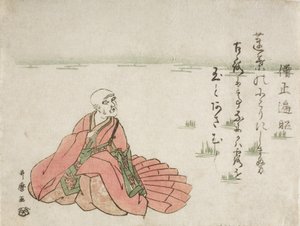 僧正遍昭
蓮葉のにこりにしまぬ
心もてなにかは露を
玉とあさむく